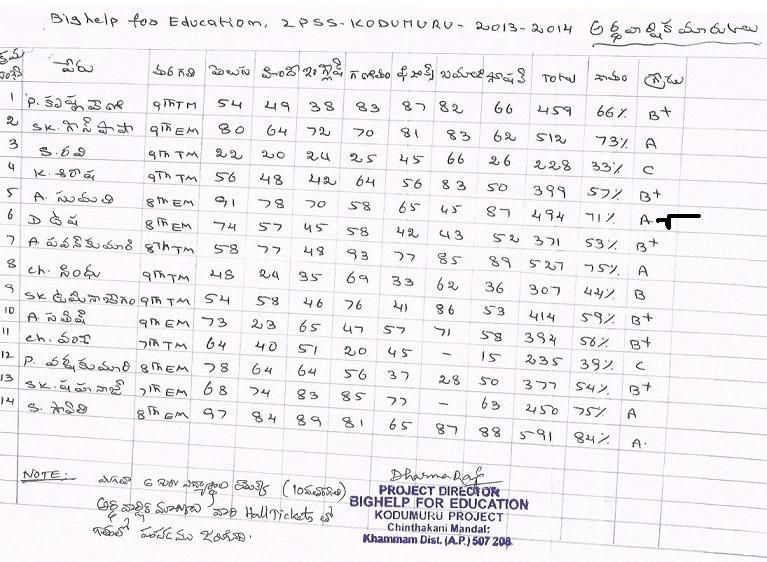 Bighelp for Education, ZPSS-KODUMURU-2013-2014 అర్ధవార్షిక మార్కులు
క్రమ సంఖ్య పేరు తరగతి తెలుగు హిందీ ఇంగ్లీష్ గణితం ఫిజిక్స్ బయాలజీ సోషల్ TOTAL శాతం గ్రేడు
1 P. 9th TM 54 49 38 83 87 82 66 459 66% B+
2 SK. 9th EM 80 64 72 70 81 83 62 512 73% A
3 S. రవి 9th TM 22 20 24 25 45 66 26 228 33% C
4 K. శిరీష 9th TM 56 48 42 64 56 83 50 399 57% B+
5 A. సుమతి 8th EM 91 78 70 58 65 45 87 494 71% A
6 D ఉష 8th EM 74 57 45 58 42 43 52 371 53% B+
7 A. పవన్ కుమారి 8th TM 58 77 48 93 77 85 89 527 75% A
8 Ch. సింధు 9th TM 48 24 35 69 33 62 36 307 44% B
9 SK. 9th TM 54 58 46 76 41 86 53 414 59% B+
10 A. 9th EM 73 23 65 47 57 71 58 394 56% B+
11 Ch. వంశి 7th TM 64 40 51 20 45 - 15 235 39% C
12 P. 8th EM 78 64 64 56 37 28 50 377 54% B+
13 SK. షహనాజ్ 7th EM 68 74 83 85 77 - 63 450 75% A
14 S. 8th EM 97 84 89 81 65 87 88 591 84% A.
NOTE: మిగతా 6 గురు విద్యార్థుల యొక్క (10వతరగతి)
అర్ధవార్షిక మార్కులు వారి Hall Tickets తో
గతంలో పంపడము జరిగినది.
DharmaRaj
PROJECT DIRECTOR
BIGHELP FOR EDUCATION
KODUMURU PROJECT
Chinthakani Mandal:
Khammam Dist. (A.P.) 507 208.